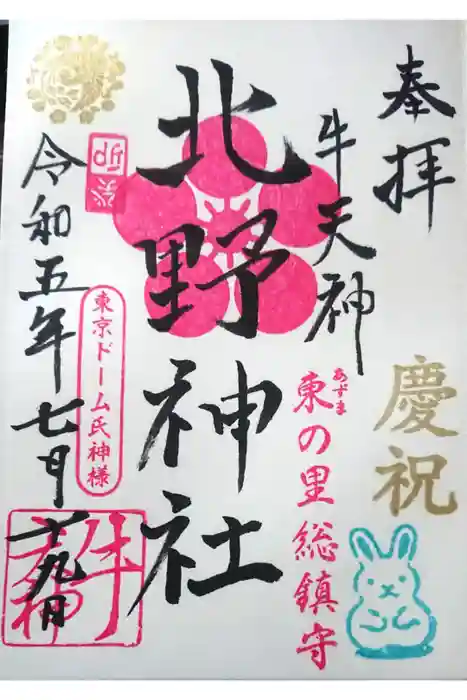 奉拝
慶祝
牛天神
あずま
東の里総鎮守
北野神社
癸卯
東京ドーム氏神様
令和五年七月十九日
牛天神